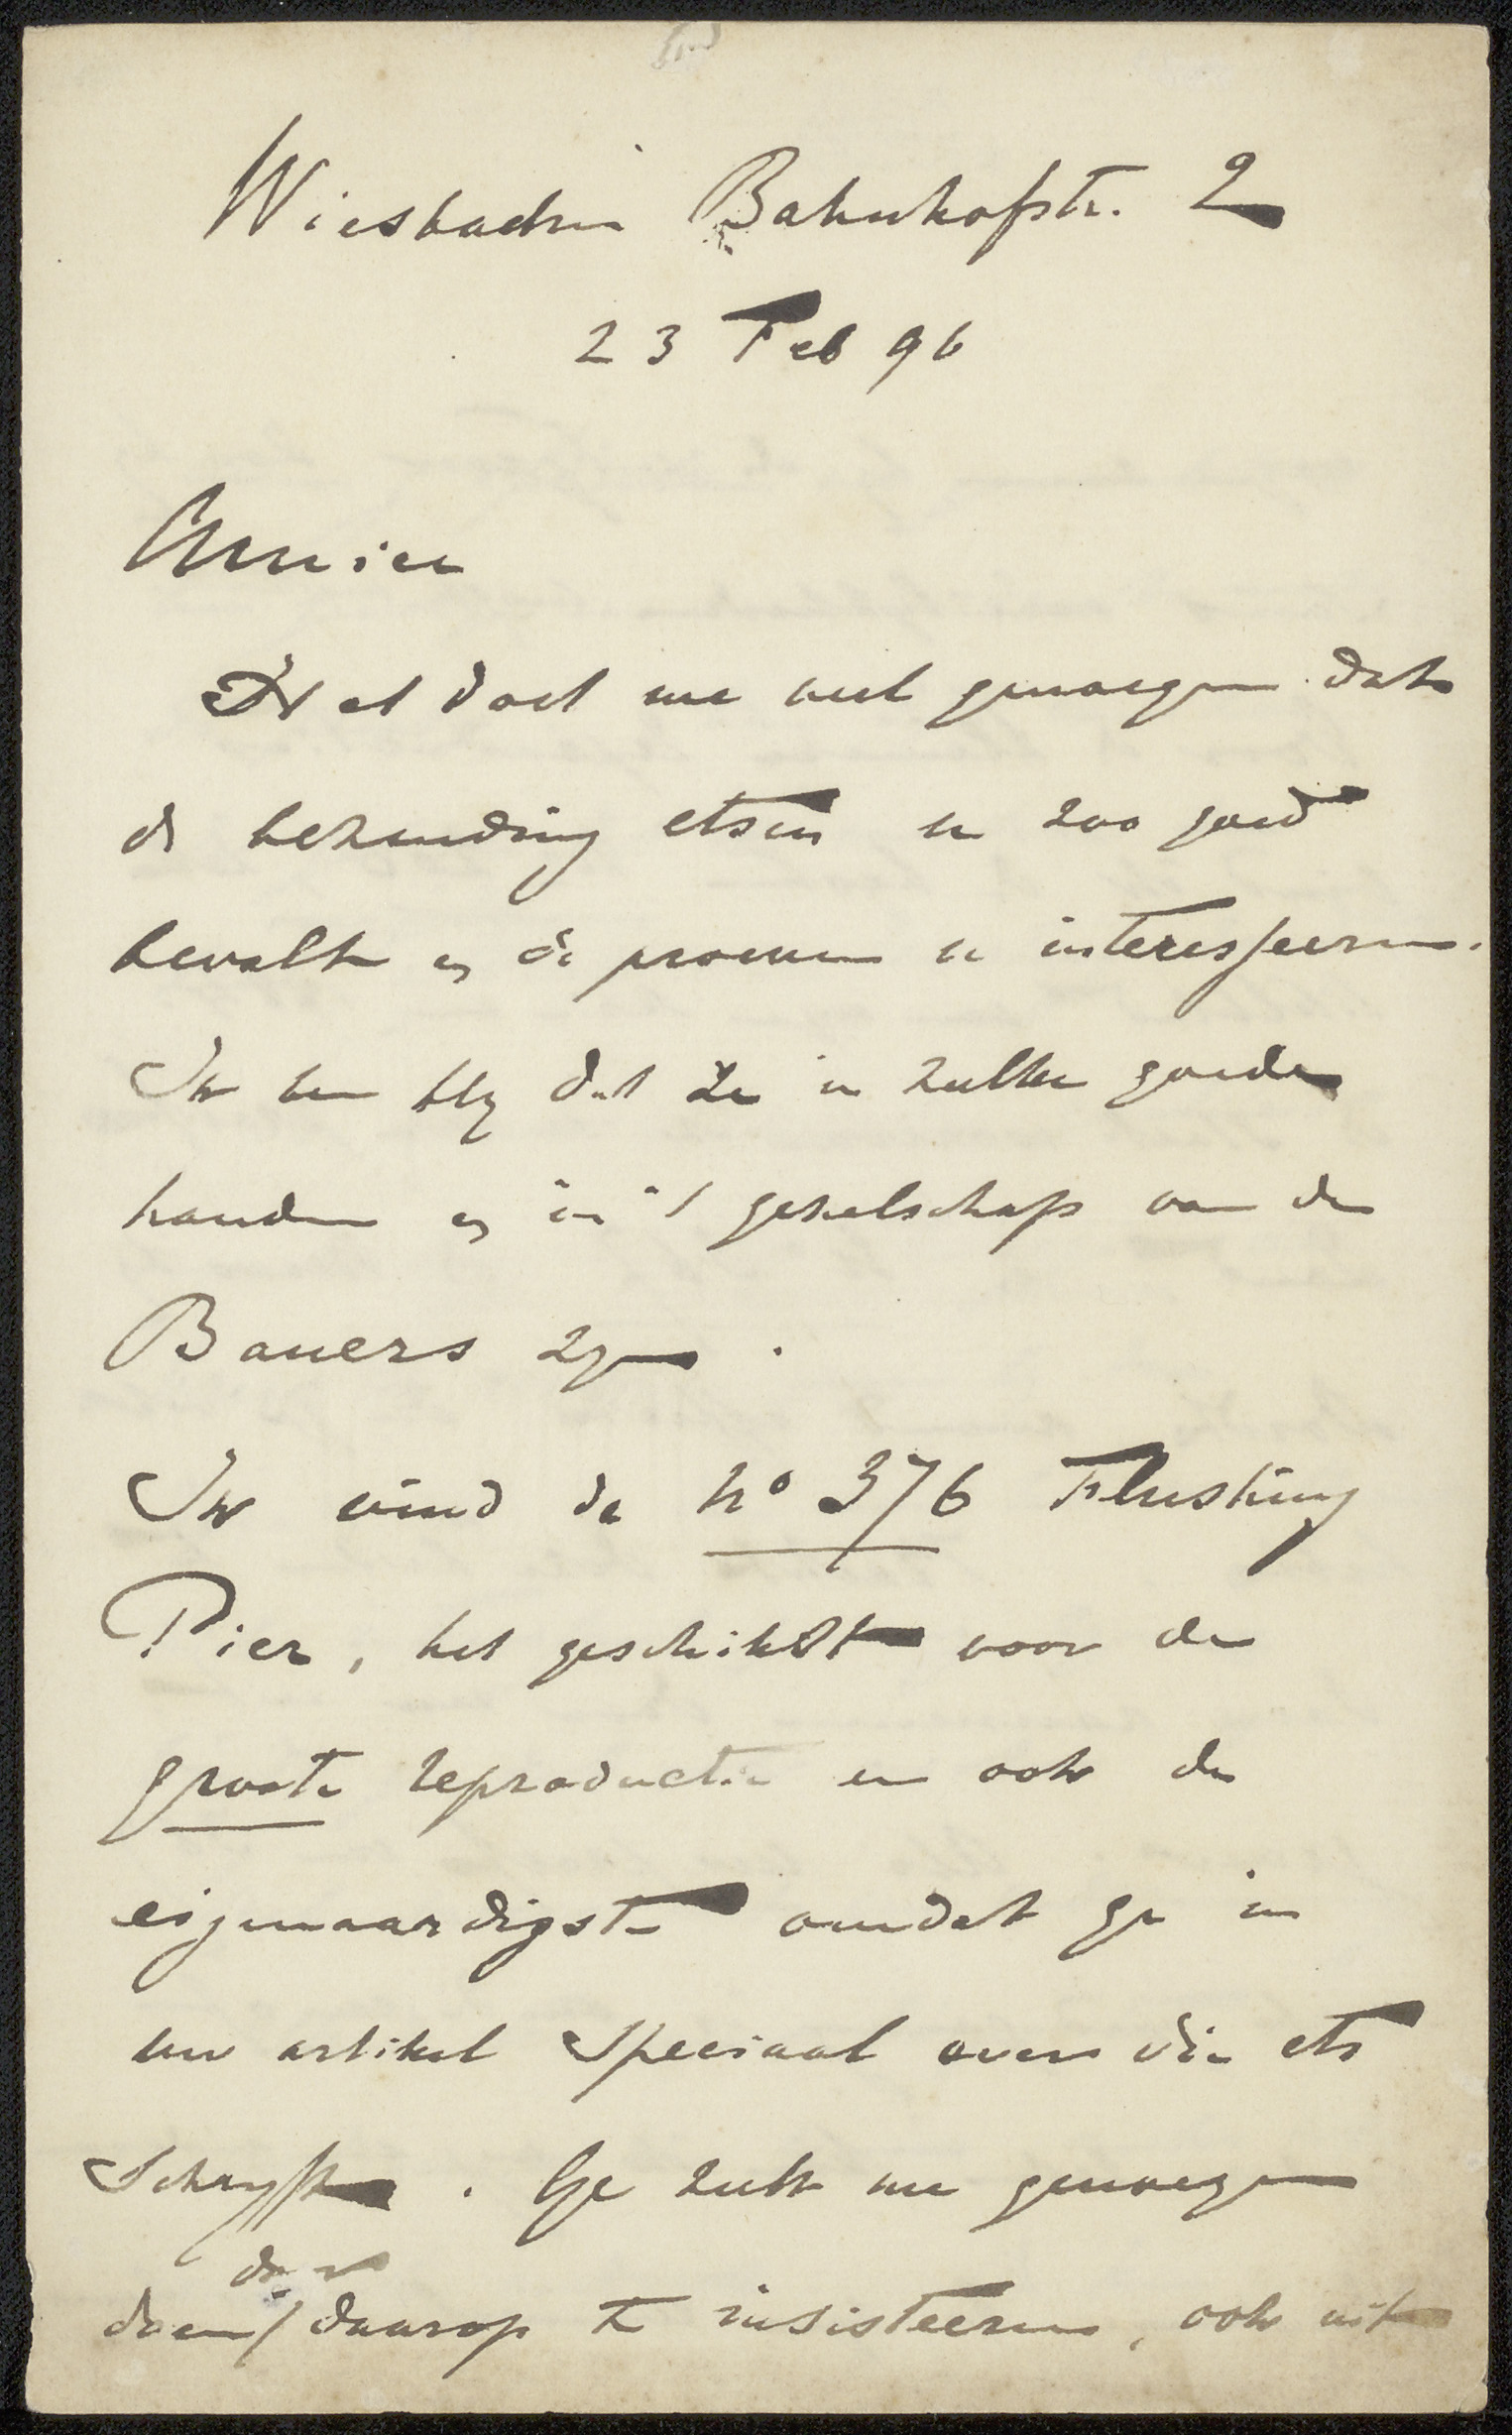 Wiesbaden Bahnhofstr. 2
23 Feb 96
Amice
Het doet me veel genoegen dat
de behandeling etsen u zoo goed
bevalt en de proeven u interesseeren.
Ik ben bly dat ze in zulke goede
handen en in 't gezelschap van de
Bauers zyn.
Ik vind de no 376 Flushing
Pier, het geschikst voor de
groote reproductie en ook de
eigenaardigste omdat ge in
uw artikel speciaal over die ets
schryft. Ge zult me genoegen
door
doen / daarop te insisteeren, ook uit